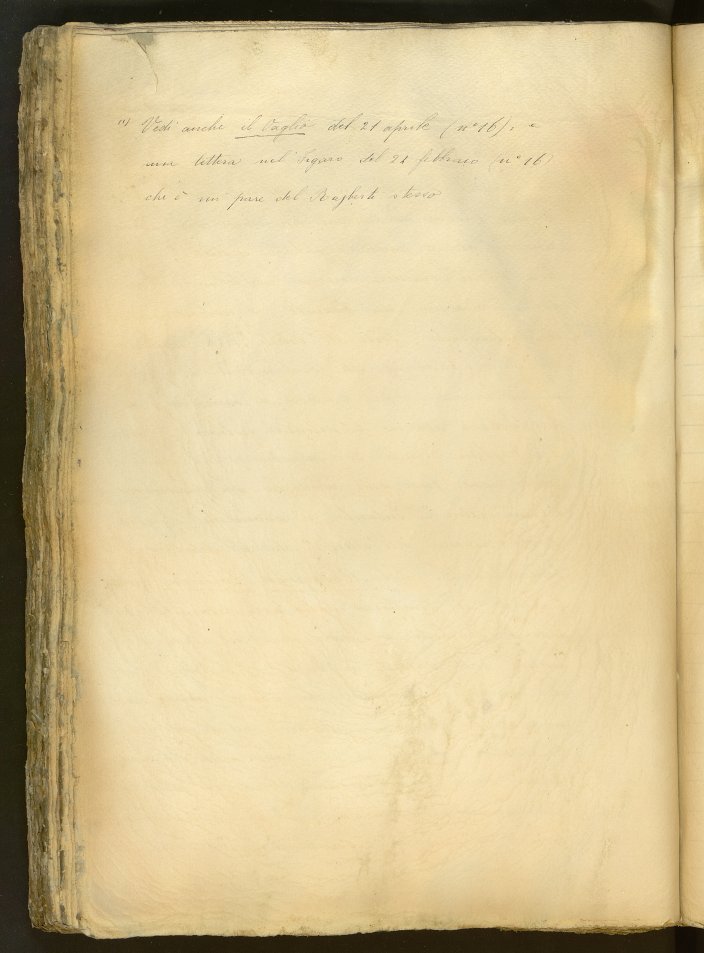 (1) Vedi anche il Vaglio del 21 aprile (n° 16); e
una lettera nel Figaro del 21 febbraio (n° 16)
che è mi pare del Raiberti stesso